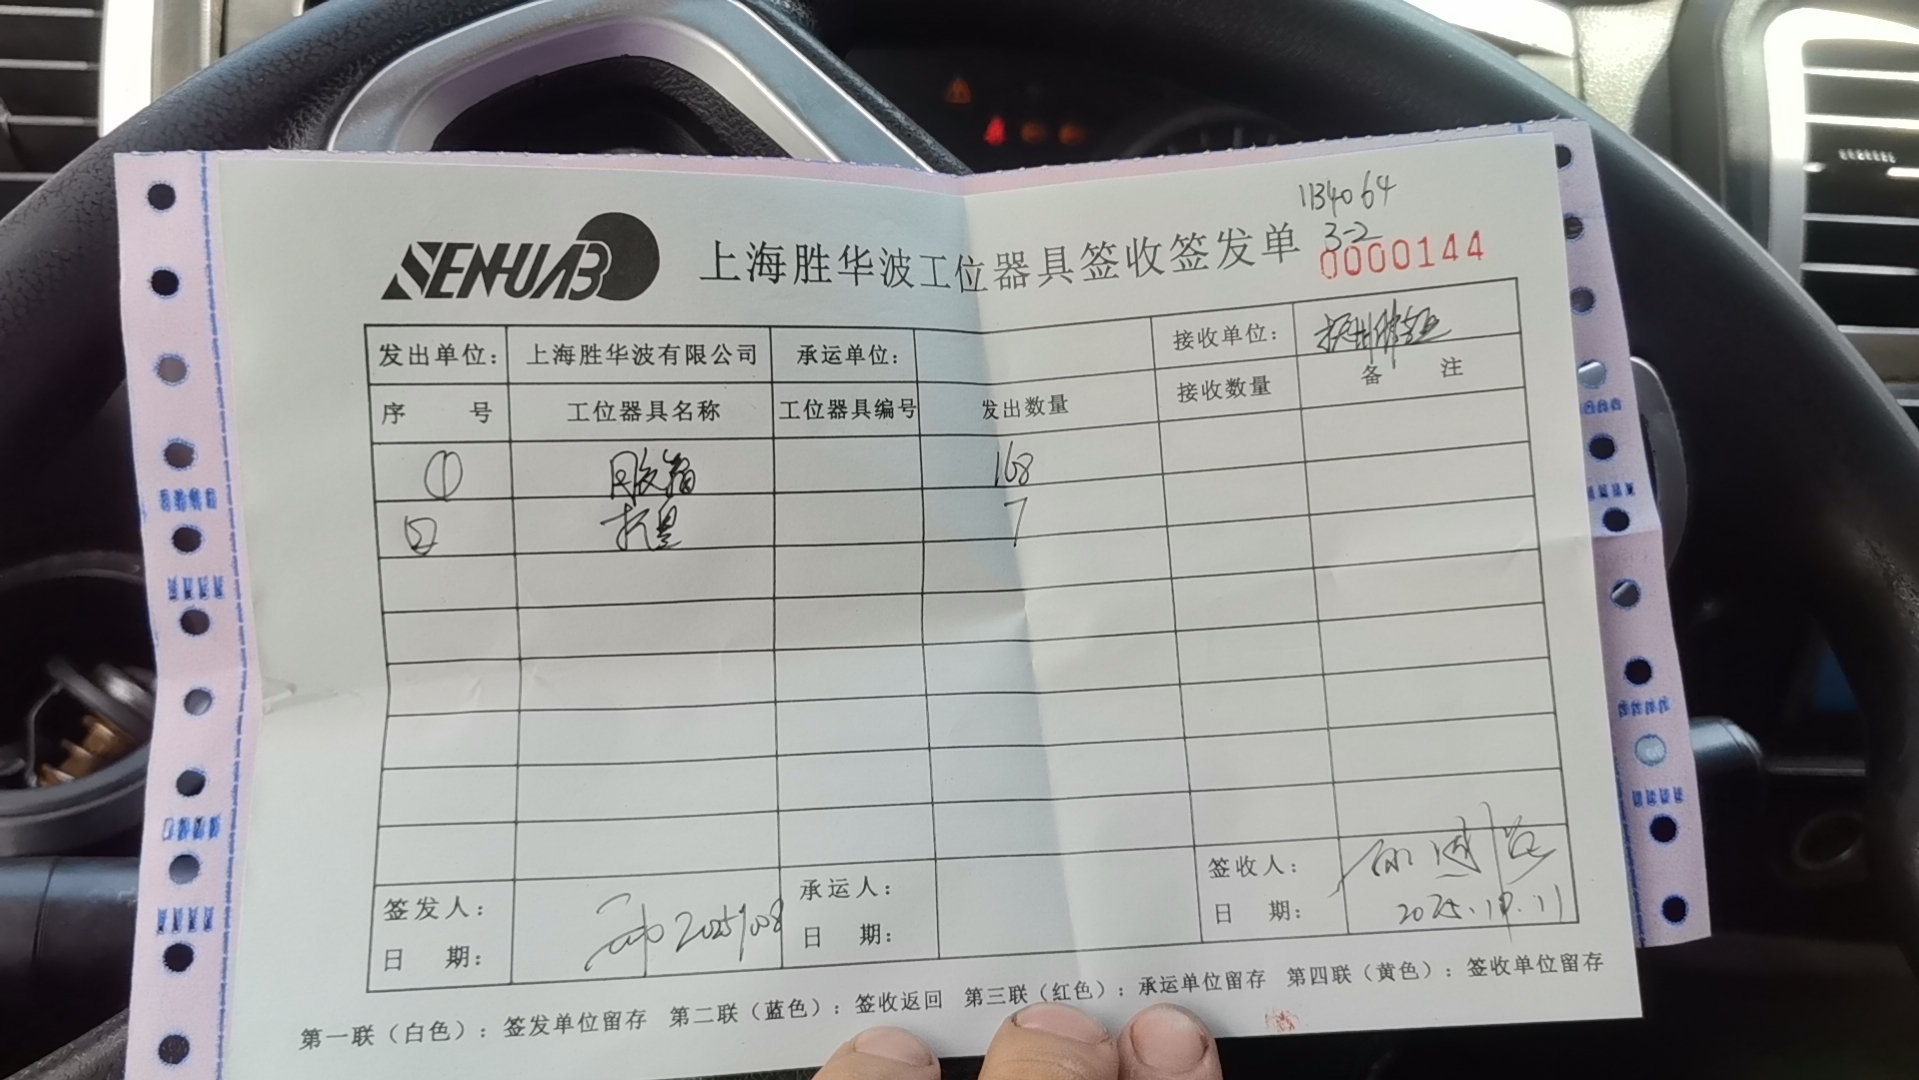 1134064
3-2
SENHUAB
上海胜华波工位器具签收签发单
0000144
发出单位: 上海胜华波有限公司 承运单位: 接收单位:
序 号 工位器具名称 工位器具编号 发出数量 接收数量 备 注
① 周转箱 168
② 托盘 7
签发人: 承运人: 签收人:
日 期: 日 期: 日 期:
第一联（白色）: 签发单位留存 第二联（蓝色）: 签收返回 第三联（红色）: 承运单位留存 第四联（黄色）: 签收单位留存